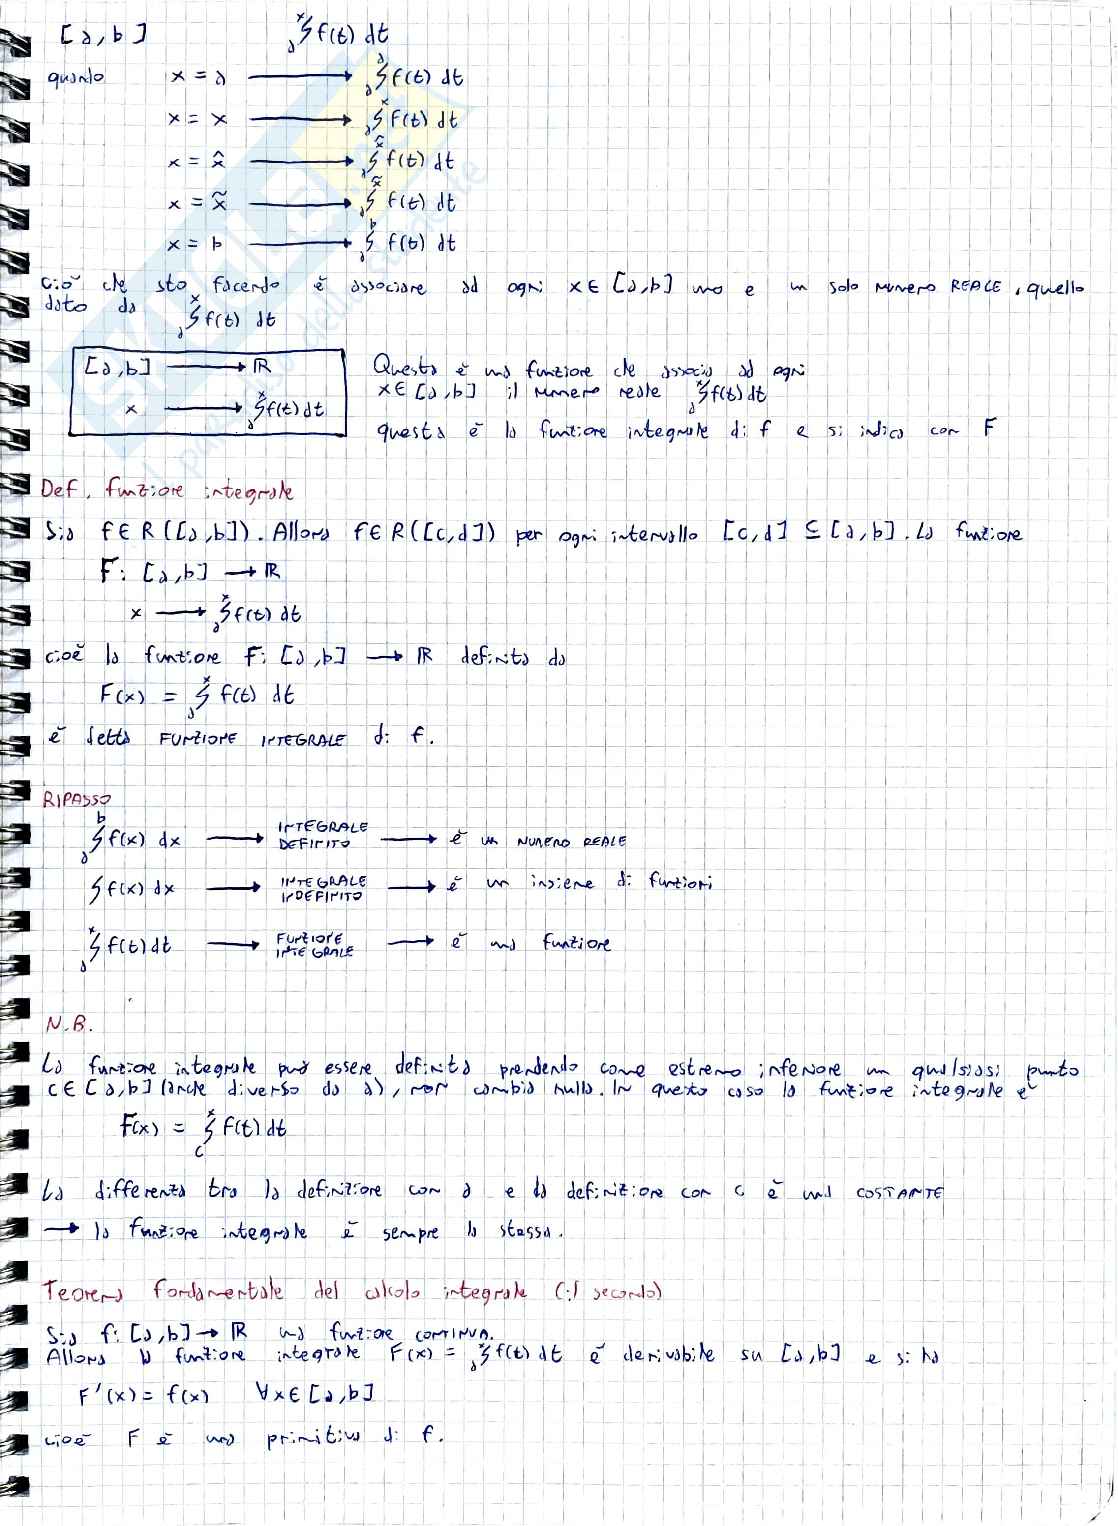 [a,b] ∫ₐˣ f(t) dt
quando x = a ⟶ ∫ₐᵃ f(t) dt
x = x ⟶ ∫ₐˣ f(t) dt
x = x̂ ⟶ ∫ₐ^x̂ f(t) dt
x = x̃ ⟶ ∫ₐ^x̃ f(t) dt
x = b ⟶ ∫ₐᵇ f(t) dt
ciò che sto facendo è associare ad ogni x∈[a,b] uno e un solo numero REALE, quello
dato da ∫ₐˣ f(t) dt
[a,b] ⟶ ℝ
x ⟶ ∫ₐˣ f(t) dt
Questa è una funzione che associa ad ogni
x∈[a,b] il numero reale ∫ₐˣ f(t) dt
questa è la funzione integrale di f e si indica con F
Def. funzione integrale
Sia f∈R([a,b]). Allora f∈R([c,d]) per ogni intervallo [c,d] ⊆ [a,b]. La funzione
F: [a,b] ⟶ ℝ
x ⟶ ∫ₐˣ f(t) dt
cioè la funzione F: [a,b] ⟶ ℝ definita da
F(x) = ∫ₐˣ f(t) dt
è detta FUNZIONE INTEGRALE di f.
RIPASSO
∫ₐᵇ f(x) dx ⟶ INTEGRALE DEFINITO ⟶ è un NUMERO REALE
∫ f(x) dx ⟶ INTEGRALE INDEFINITO ⟶ è un insieme di funzioni
∫ₐˣ f(t) dt ⟶ FUNZIONE INTEGRALE ⟶ è una funzione
N.B.
La funzione integrale può essere definita prendendo come estremo inferiore un qualsiasi punto
c∈[a,b] (anche diverso da a), non cambia nulla. In questo caso la funzione integrale è
F(x) = ∫_c^x f(t) dt
La differenza tra la definizione con a e la definizione con c è una COSTANTE
⟶ la funzione integrale è sempre la stessa.
Teorema fondamentale del calcolo integrale (il secondo)
Sia f: [a,b] ⟶ ℝ una funzione CONTINUA.
Allora la funzione integrale F(x) = ∫ₐˣ f(t) dt è derivabile su [a,b] e si ha
F'(x) = f(x) ∀x∈[a,b]
cioè F è una primitiva di f.